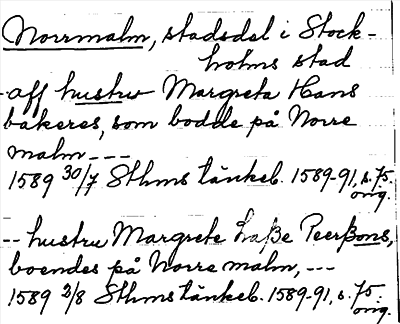 Norrmalm, stadsdel i Stock-
holms stad
-aff hustrw Margreta Hans
bakeres, som bodde på Norre
malm ---
1589 30/7 Sthms tänkeb. 1589-91, s. 75.
orig.
-- hustru Margrete Laße Peerßons,
boendes på Norre malm, ---
1589 2/8 Sthms tänkeb. 1589-91, s. 75.
orig.